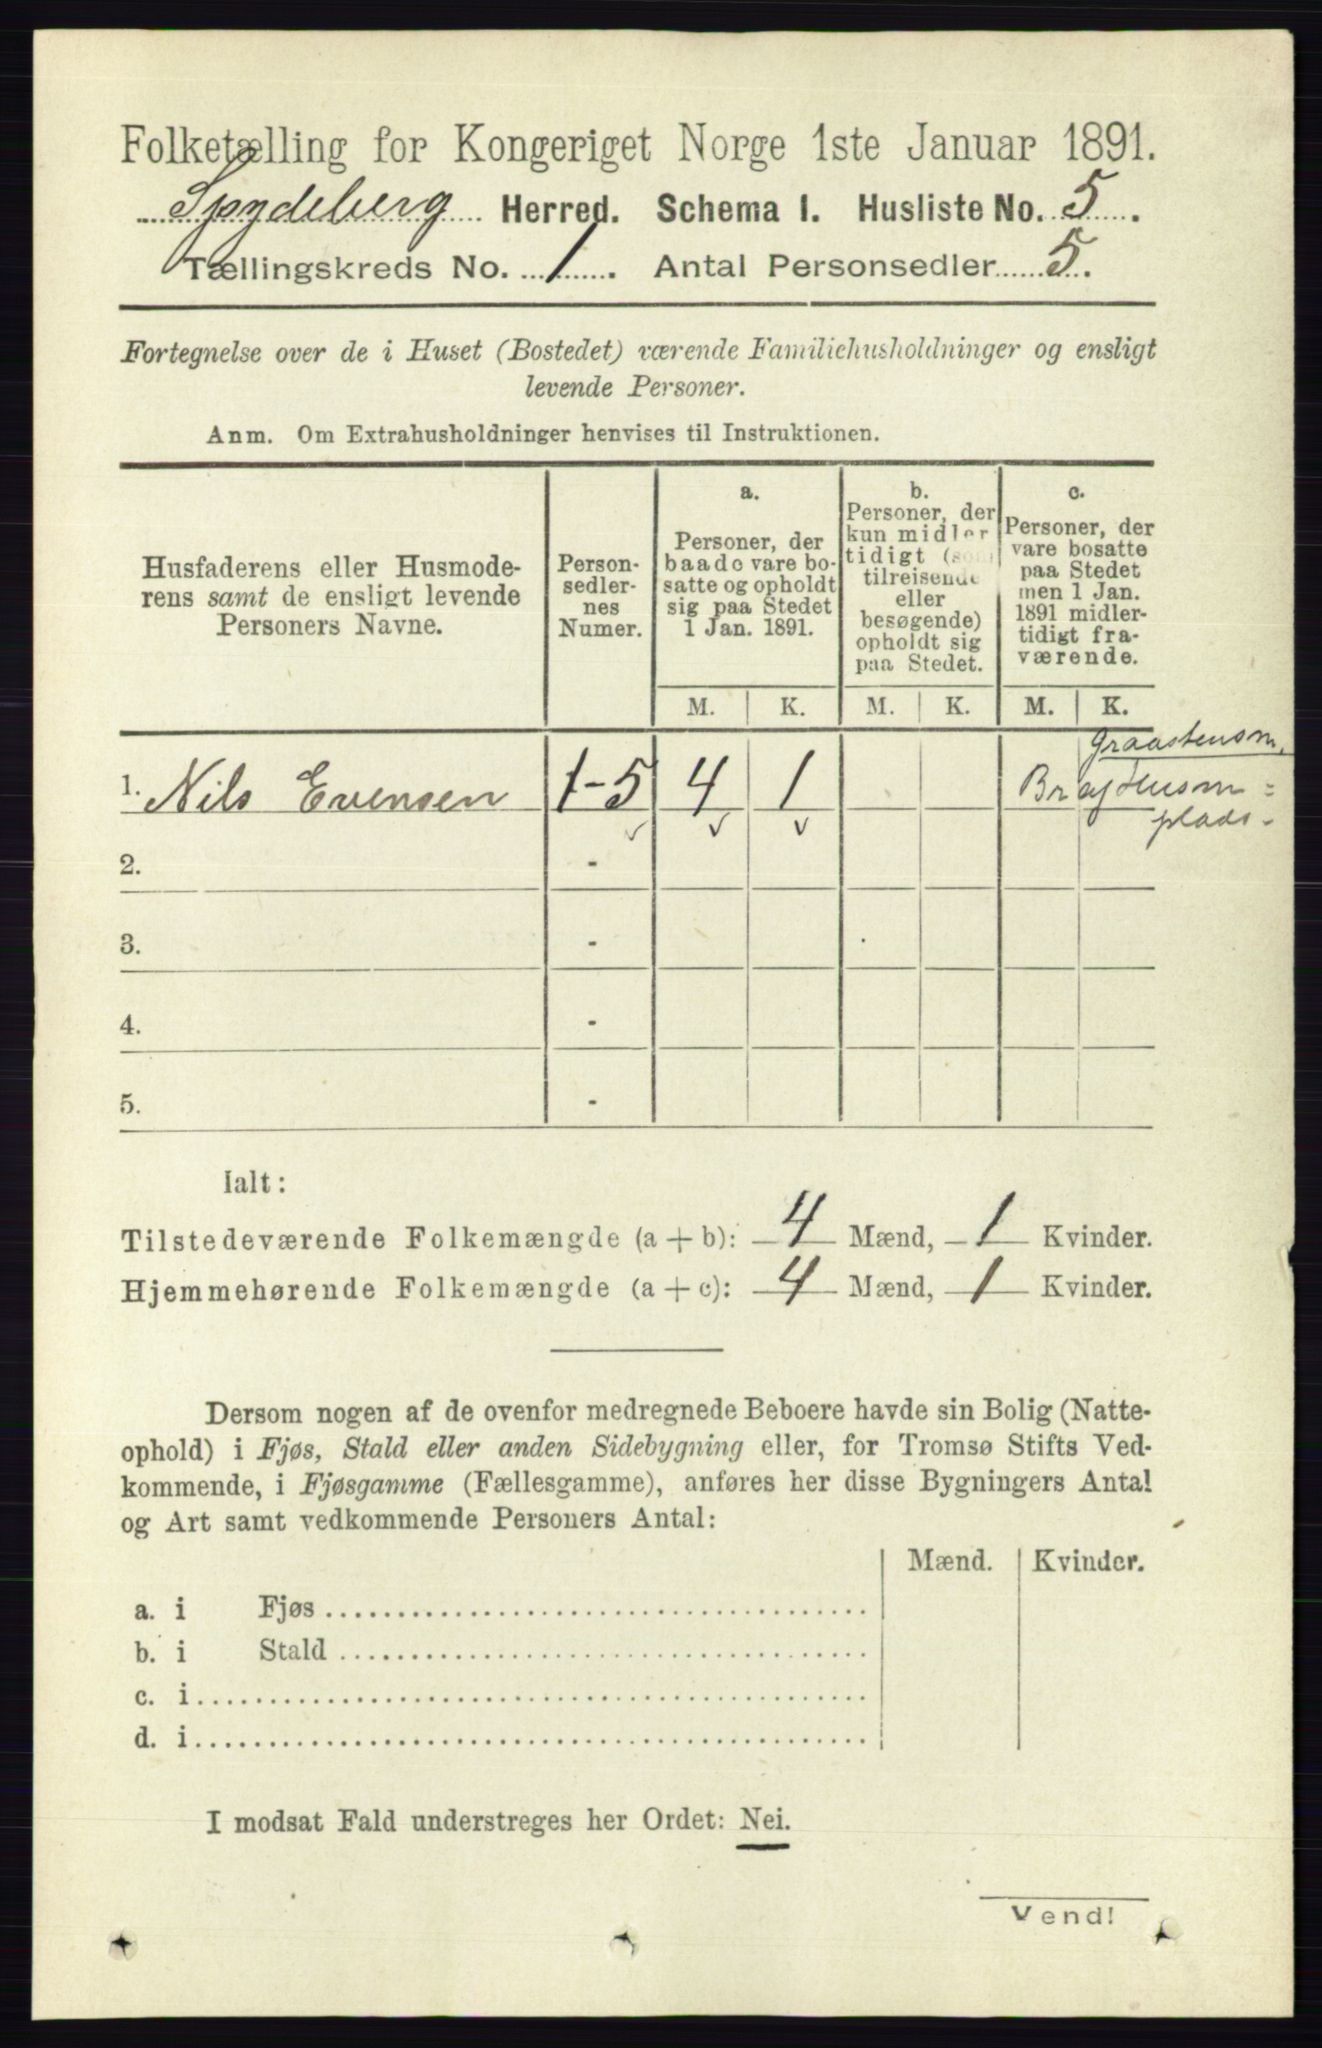 Folketælling for Kongeriget Norge 1ste Januar 1891.
Spydeberg Herred. Schema I. Husliste No. 5.
Tællingskreds No. 1. Antal Personsedler 5.
Fortegnelse over de i Huset (Bostedet) værende Familiehusholdninger og ensligt
levende Personer.
Anm. Om Extrahusholdninger henvises til Instruktionen.
Husfaderens eller Husmode-
rens samt de ensligt levende
Personers Navne.
Person-
sedler-
nes
Numer.
a.
Personer, der
baade vare bo-
satte og opholdt
sig paa Stedet
1 Jan. 1891.
b.
Personer, der
kun midler
tidigt (som
tilreisende
eller
besøgende)
opholdt sig
paa Stedet.
c.
Personer, der
vare bosatte
paa Stedet
men 1 Jan.
1891 midler-
tidigt fra-
værende.
M. K. M. K. M. K.
Graastensm.
1. Nils Evensen 1-5 4 1
Husm=
plads.
2. -
3. -
4. -
5. -
Ialt:
Tilstedeværende Folkemængde (a + b): 4 Mænd, 1 Kvinder.
Hjemmehørende Folkemængde (a + c): 4 Mænd, 1 Kvinder.
Dersom nogen af de ovenfor medregnede Beboere havde sin Bolig (Natte-
ophold) i Fjøs, Stald eller anden Sidebygning eller, for Tromsø Stifts Ved-
kommende, i Fjøsgamme (Fællesgamme), anføres her disse Bygningers Antal
og Art samt vedkommende Personers Antal:
Mænd. Kvinder.
a. i Fjøs
b. i Stald
c. i
d. i
I modsat Fald understreges her Ordet: Nei.
Vend!